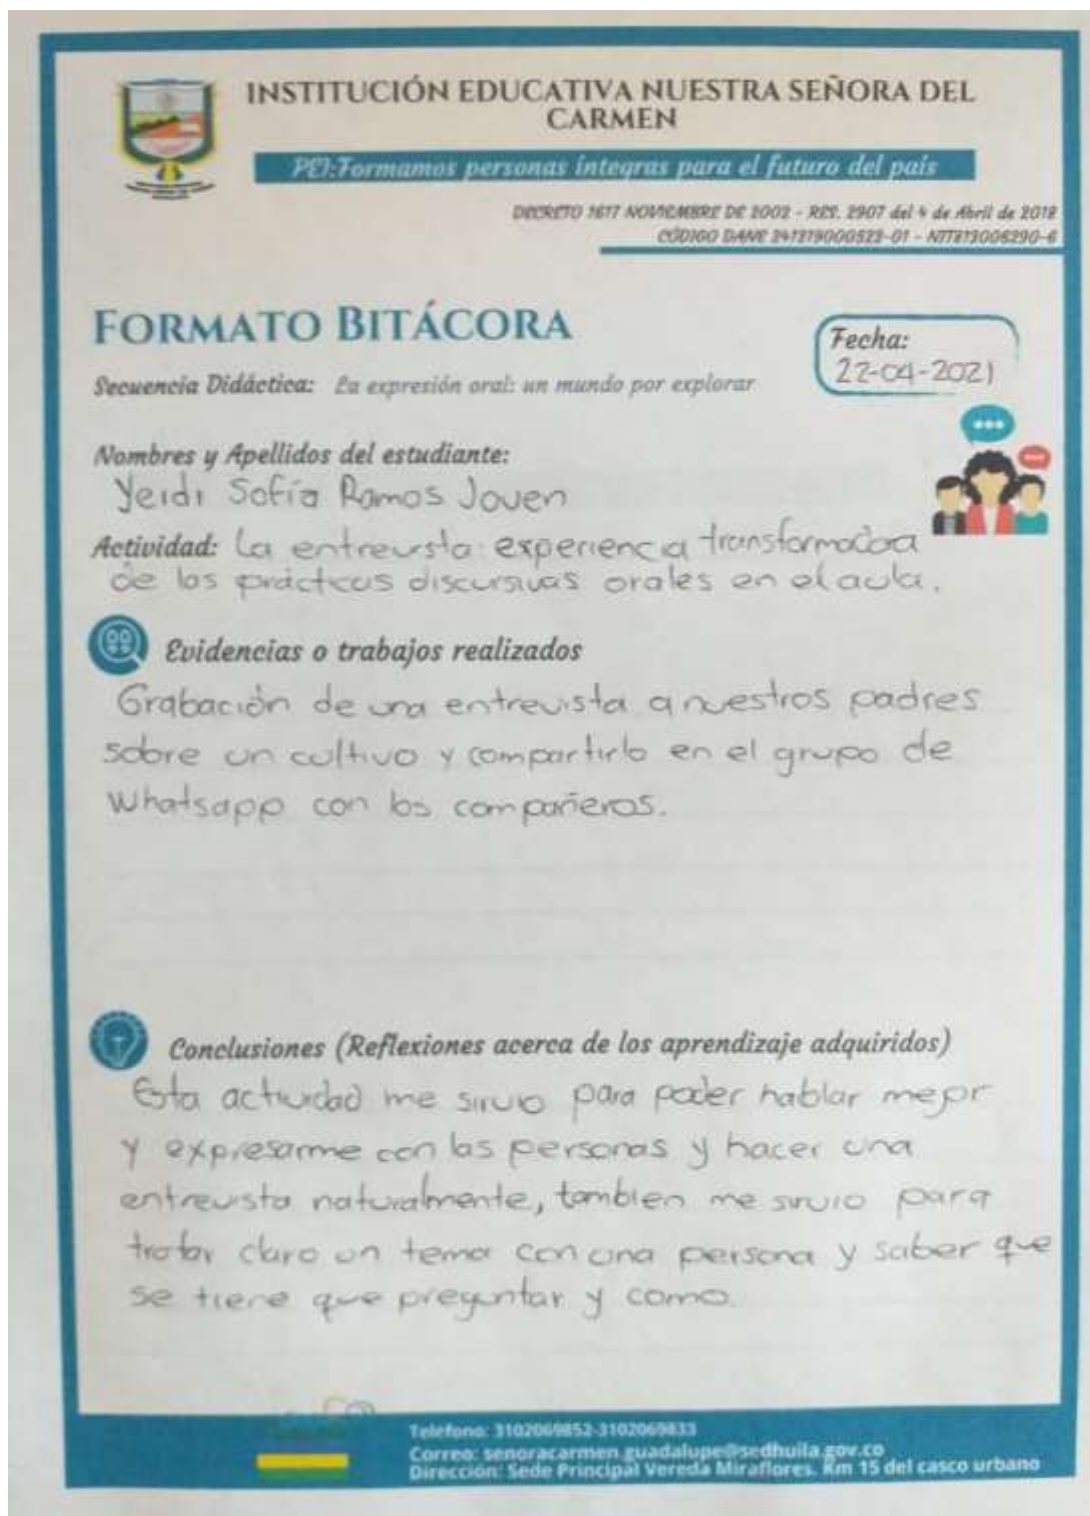 INSTITUCIÓN EDUCATIVA NUESTRA SEÑORA DEL
CARMEN
PEI:Formamos personas integras para el futuro del país
DECRETO 1617 NOVIEMBRE DE 2002 - RES. 2907 del 4 de Abril de 2018
CÓDIGO DANE 241319000523-01 - NIT813006290-6
FORMATO BITÁCORA
Fecha:
22-04-2021
Secuencia Didáctica: La expresión oral: un mundo por explorar
Nombres y Apellidos del estudiante:
Yeidi Sofía Ramos Joven
Actividad: La entrevista: experiencia transformadora
de las prácticas discursivas orales en el aula.
Evidencias o trabajos realizados
Grabación de una entrevista a nuestros padres
sobre un cultivo y compartirlo en el grupo de
Whatsapp con los compañeros.
Conclusiones (Reflexiones acerca de los aprendizaje adquiridos)
Esta actividad me sirvio para poder hablar mejor
y expresarme con las personas y hacer una
entrevista naturalmente, tambien me sirvio para
tratar claro un tema con una persona y saber que
se tiene que preguntar y como.
Teléfono: 3102069852-3102069833
Correo: senoracarmen.guadalupe@sedhuila.gov.co
Dirección: Sede Principal Vereda Miraflores. Km 15 del casco urbano